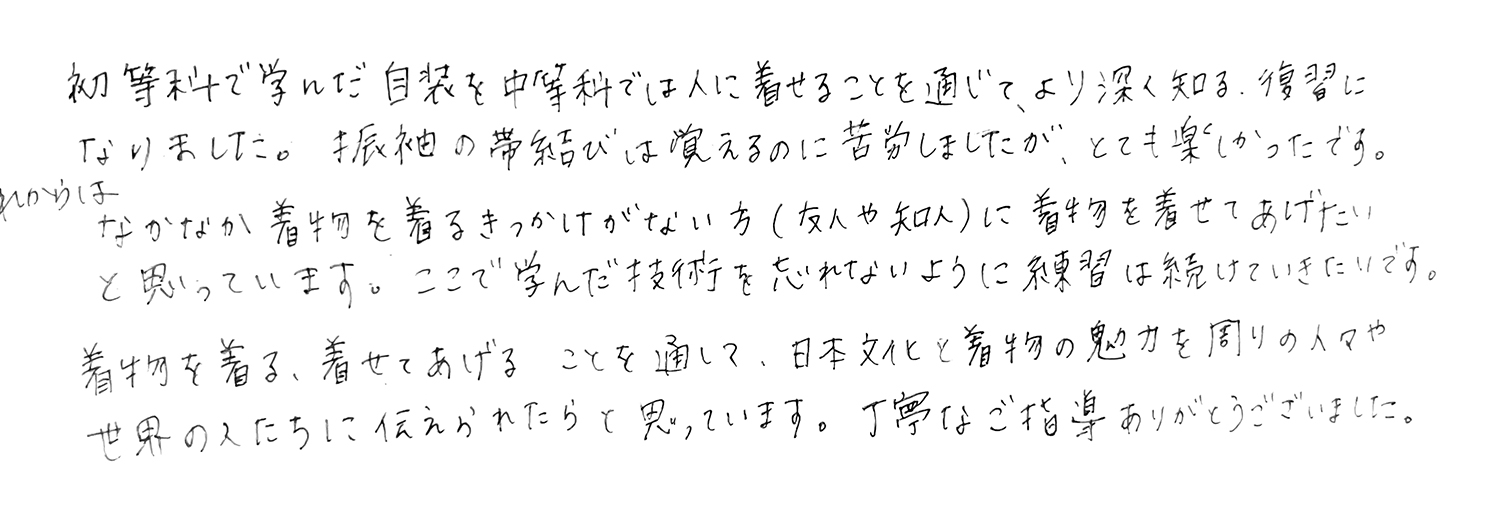 初等科で学んだ自装を中等科では人に着せることを通じて、より深く知る.復習に
なりました。振袖の帯結びは覚えるのに苦労しましたが、とても楽しかったです。
れからは
なかなか着物を着るきっかけがない方(友人や知人)に着物を着せてあげたい
と思っています。ここで学んだ技術を忘れないように練習は続けていきたいです。
着物を着る、着せてあげることを通して、日本文化と着物の魅力を周りの人々や
世界の人たちに伝えられたらと思っています。丁寧なご指導ありがとうございました。